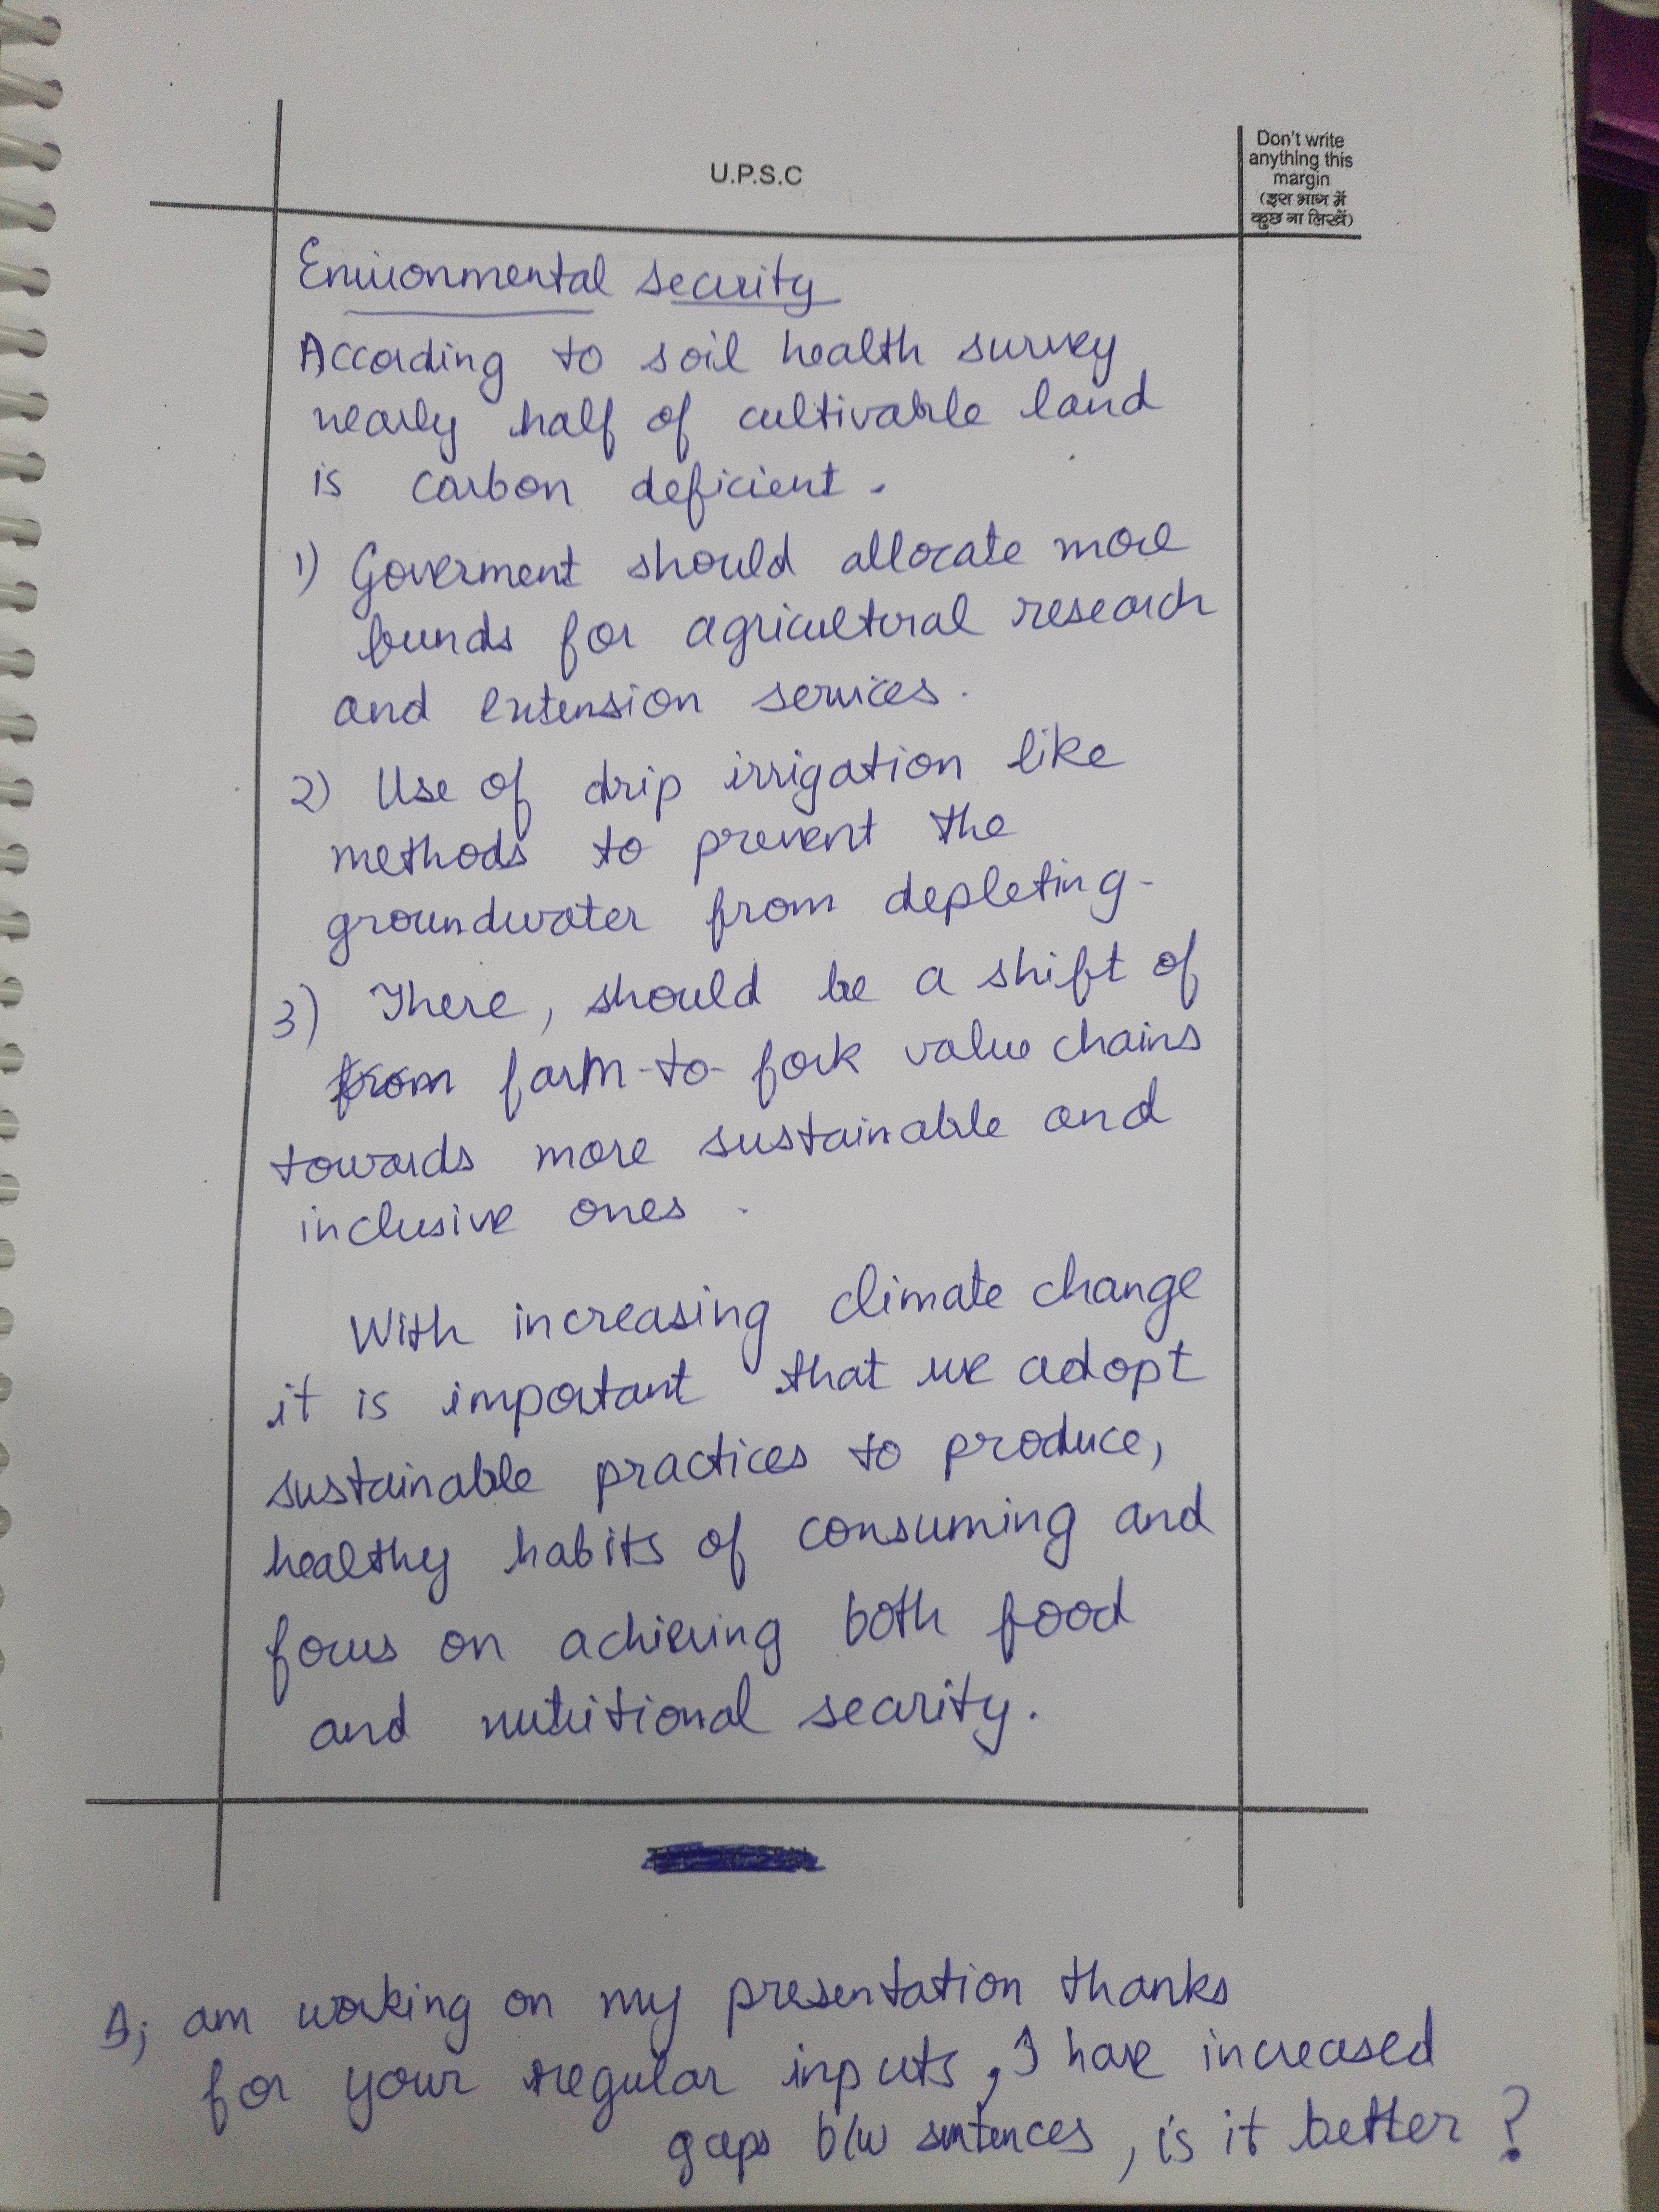 U.P.S.C
Don't write
anything this
margin
(इस भाग में
कुछ ना लिखें)
Environmental security
According to soil health survey
nearly half of cultivable land
is carbon deficient.
1) Goverment should allocate more
funds for agricultural research
and extension services.
2) Use of drip irrigation like
methods to prevent the
groundwater from depleting.
3) There, should be a shift of
from farm-to-fork value chains
towards more sustainable and
inclusive ones.
With increasing climate change
it is important that we adopt
sustainable practices to produce,
healthy habits of consuming and
focus on achieving both food
and nutritional security.
am working on my presentation thanks
for your regular inputs, I have increased
gaps b/w sentences, is it better?